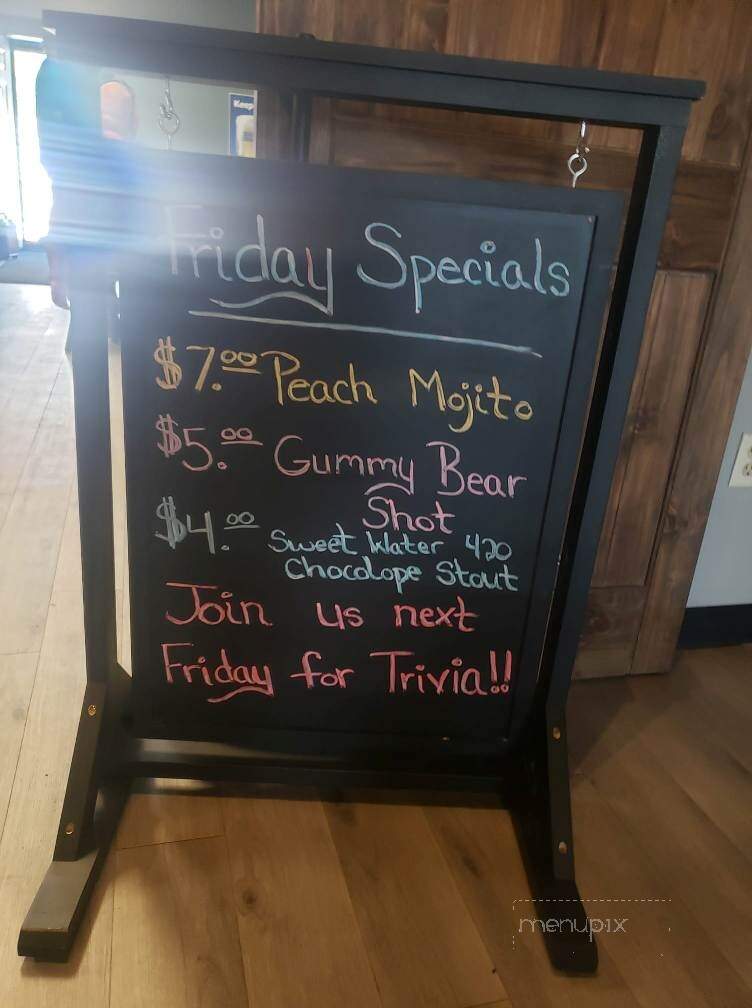 Keep
Friday Specials
$7.00 Peach Mojito
$5.00 Gummy Bear
Shot
$4.00 Sweet Water 420
Chocolope Stout
Join us next
Friday for Trivia!!
menupix